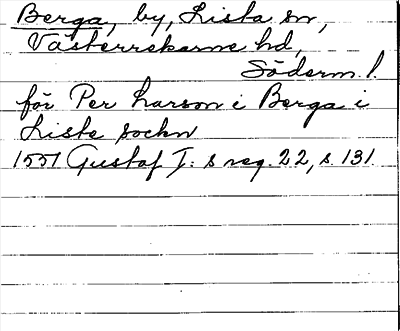 Berga, by, Lista sn,
Västerrekarne hd,
Söderm. l.
för Per Larson i Berga i
Liste sockn
1551 Gustaf I: s reg. 22, s. 131.